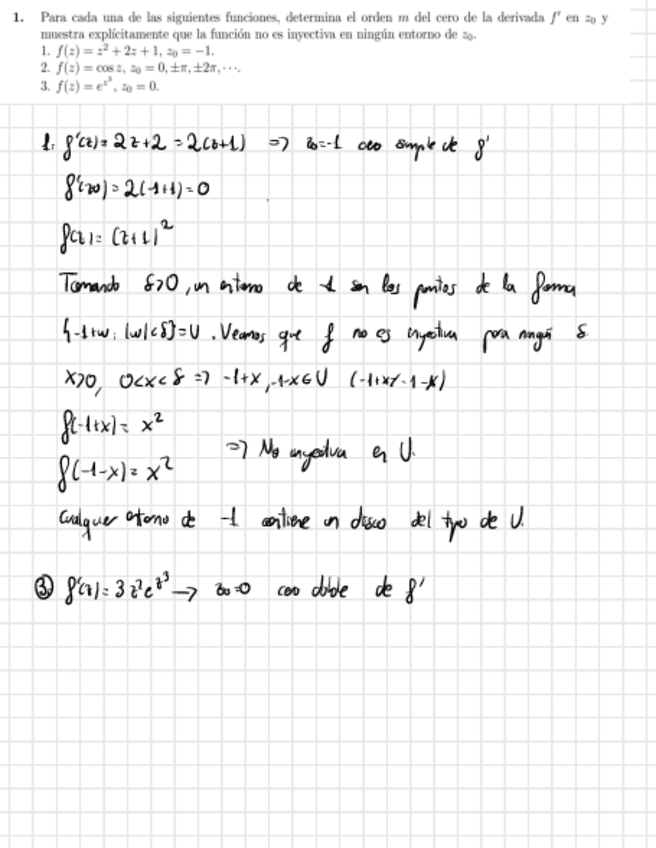 1. Para cada una de las siguientes funciones, determina el orden m del cero de la derivada f′ en z₀ y
muestra explícitamente que la función no es inyectiva en ningún entorno de z₀.
1. f(z) = z² + 2z + 1, z₀ = −1.
2. f(z) = cos z, z₀ = 0, ±π, ±2π, ⋯.
3. f(z) = e^{z³}, z₀ = 0.
1. f'(z) = 2z+2 = 2(z+1) ⇒ z₀=-1 cero simple de f'
f'(z₀) = 2(-1+1) = 0
f(z) = (z+1)²
Tomando δ>0, un entorno de -1 son los puntos de la forma
{-1+w: |w|<δ}=U. Veamos que f no es inyectiva para ningún δ
x>0, 0<x<δ ⇒ -1+x, -1-x∈U (-1+x≠-1-x)
f(-1+x) = x²
⇒ No inyectiva en U.
f(-1-x) = x²
Cualquier entorno de -1 contiene un disco del tipo de U.
③ f'(z) = 3z²e^{z³} → z₀=0 cero doble de f'